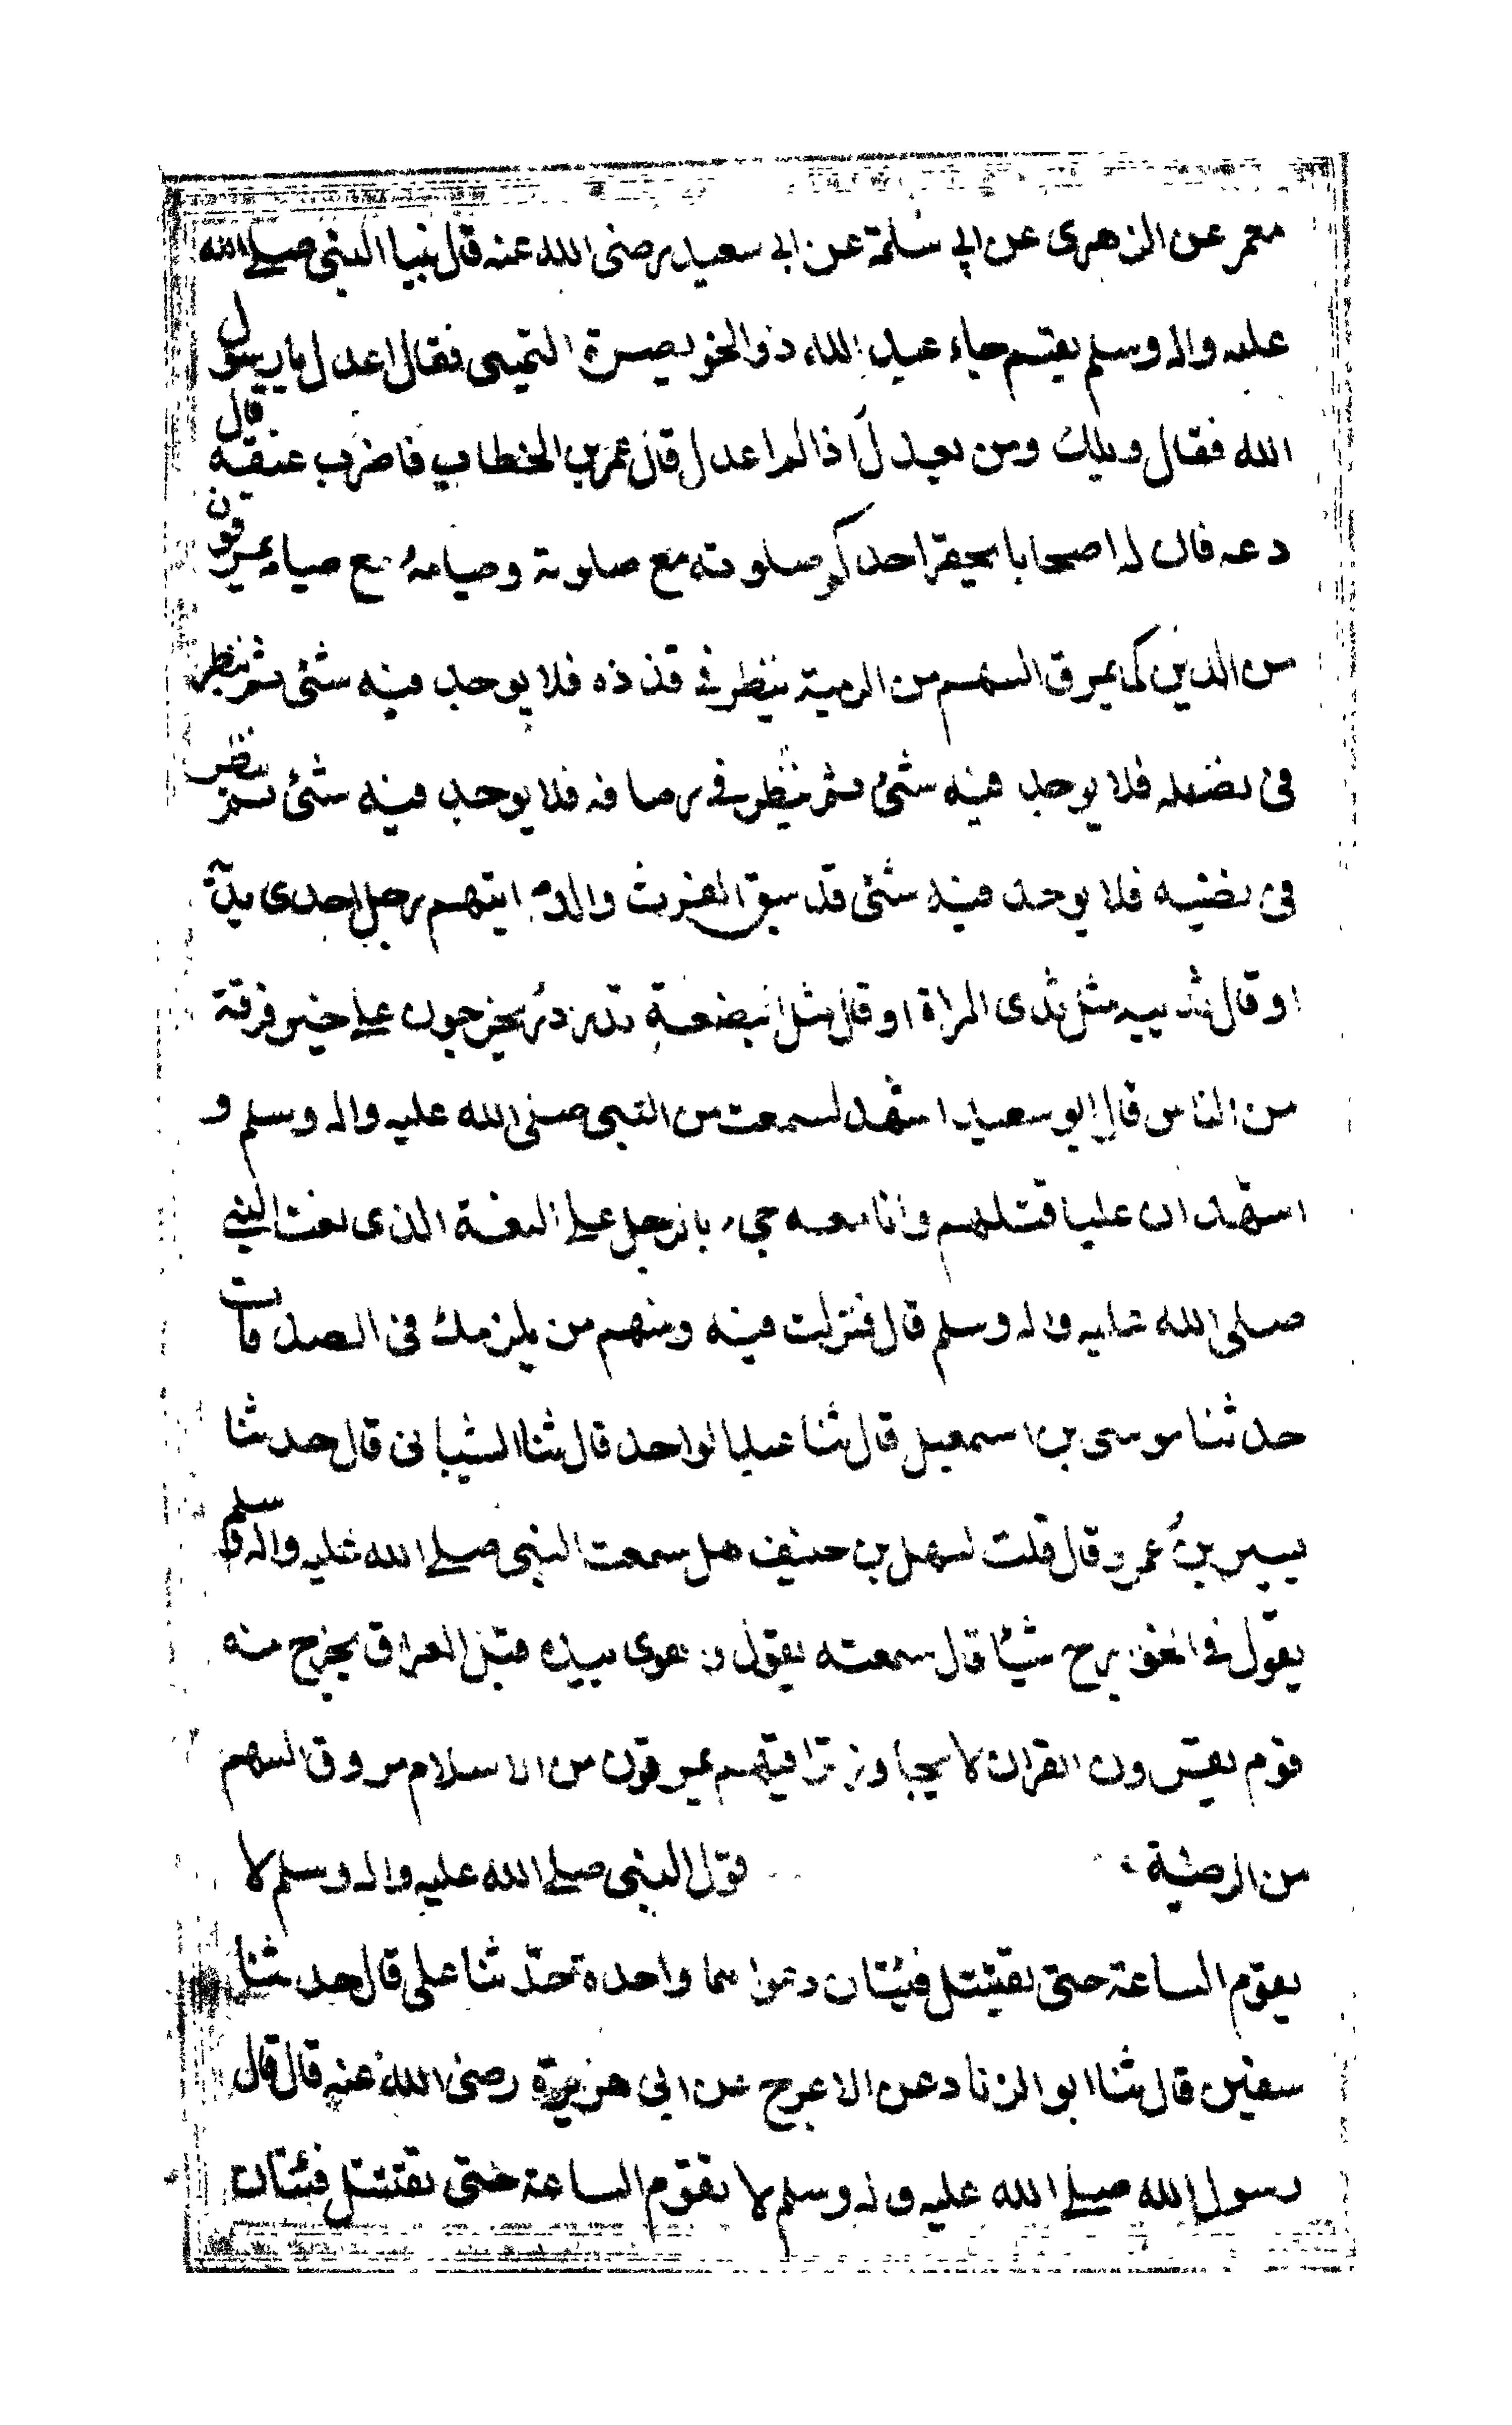 معمر عن الزهرى عن ابي سلمة عن ابى سعيد رضى الله عنه قال بينا النبى صلے الله
عليه واله وسلم يقسم جاء عبد الله ذو الخويصرة التميمى فقال اعدل يا رسول
الله فقال ويلك ومن يعدل اذا لم اعدل قال عمر بن الخطاب فاضرب عنقه قال
دعه فان له اصحابا يحقر احدكم صلوته مع صلوته وصيامه مع صيامه يمرقون
من الدين كما يمرق السهم من الرمية ينظر فى قذذه فلا يوجد فيه شئ ثم ينظر
فى نصله فلا يوجد فيه شئ ثم ينظر فى رصافه فلا يوجد فيه شئ ثم ينظر
فى نضيه فلا يوجد فيه شئ قد سبق الفرث والدم ايتهم رجل احدى يديه
او قال ثدييه مثل ثدى المراة او قال مثل البضعة تدردر يخرجون علے حين فرقة
من الناس قال ابو سعيد اشهد لسمعت من النبى صلى الله عليه واله وسلم و
اشهد ان عليا قتلهم وانا معه جىء بالرجل علے النعت الذى نعت النبى
صلى الله عليه واله وسلم قال فنزلت فيه ومنهم من يلمزك فى الصدقات
حدثنا موسى بن اسمعيل قال ثنا عبد الواحد قال ثنا الشيبانى قال حدثنا
يسير بن عمرو قال قلت لسهل بن حنيف هل سمعت النبى صلے الله عليه واله وسلم
يقول فى الخوارج شيئا قال سمعته يقول و اهوى بيده قبل العراق يخرج منه
قوم يقرءون القران لا يجاوز تراقيهم يمرقون من الاسلام مروق السهم
من الرمية قول النبى صلے الله عليه واله وسلم لا
يقوم الساعة حتى يقتتل فئتان دعواهما واحدة حدثنا على قال حدثنا
سفين قال ثنا ابو الزناد عن الاعرج عن ابى هريرة رضى الله عنه قال قال
رسول الله صلے الله عليه واله وسلم لا تقوم الساعة حتى يقتتل فئتان